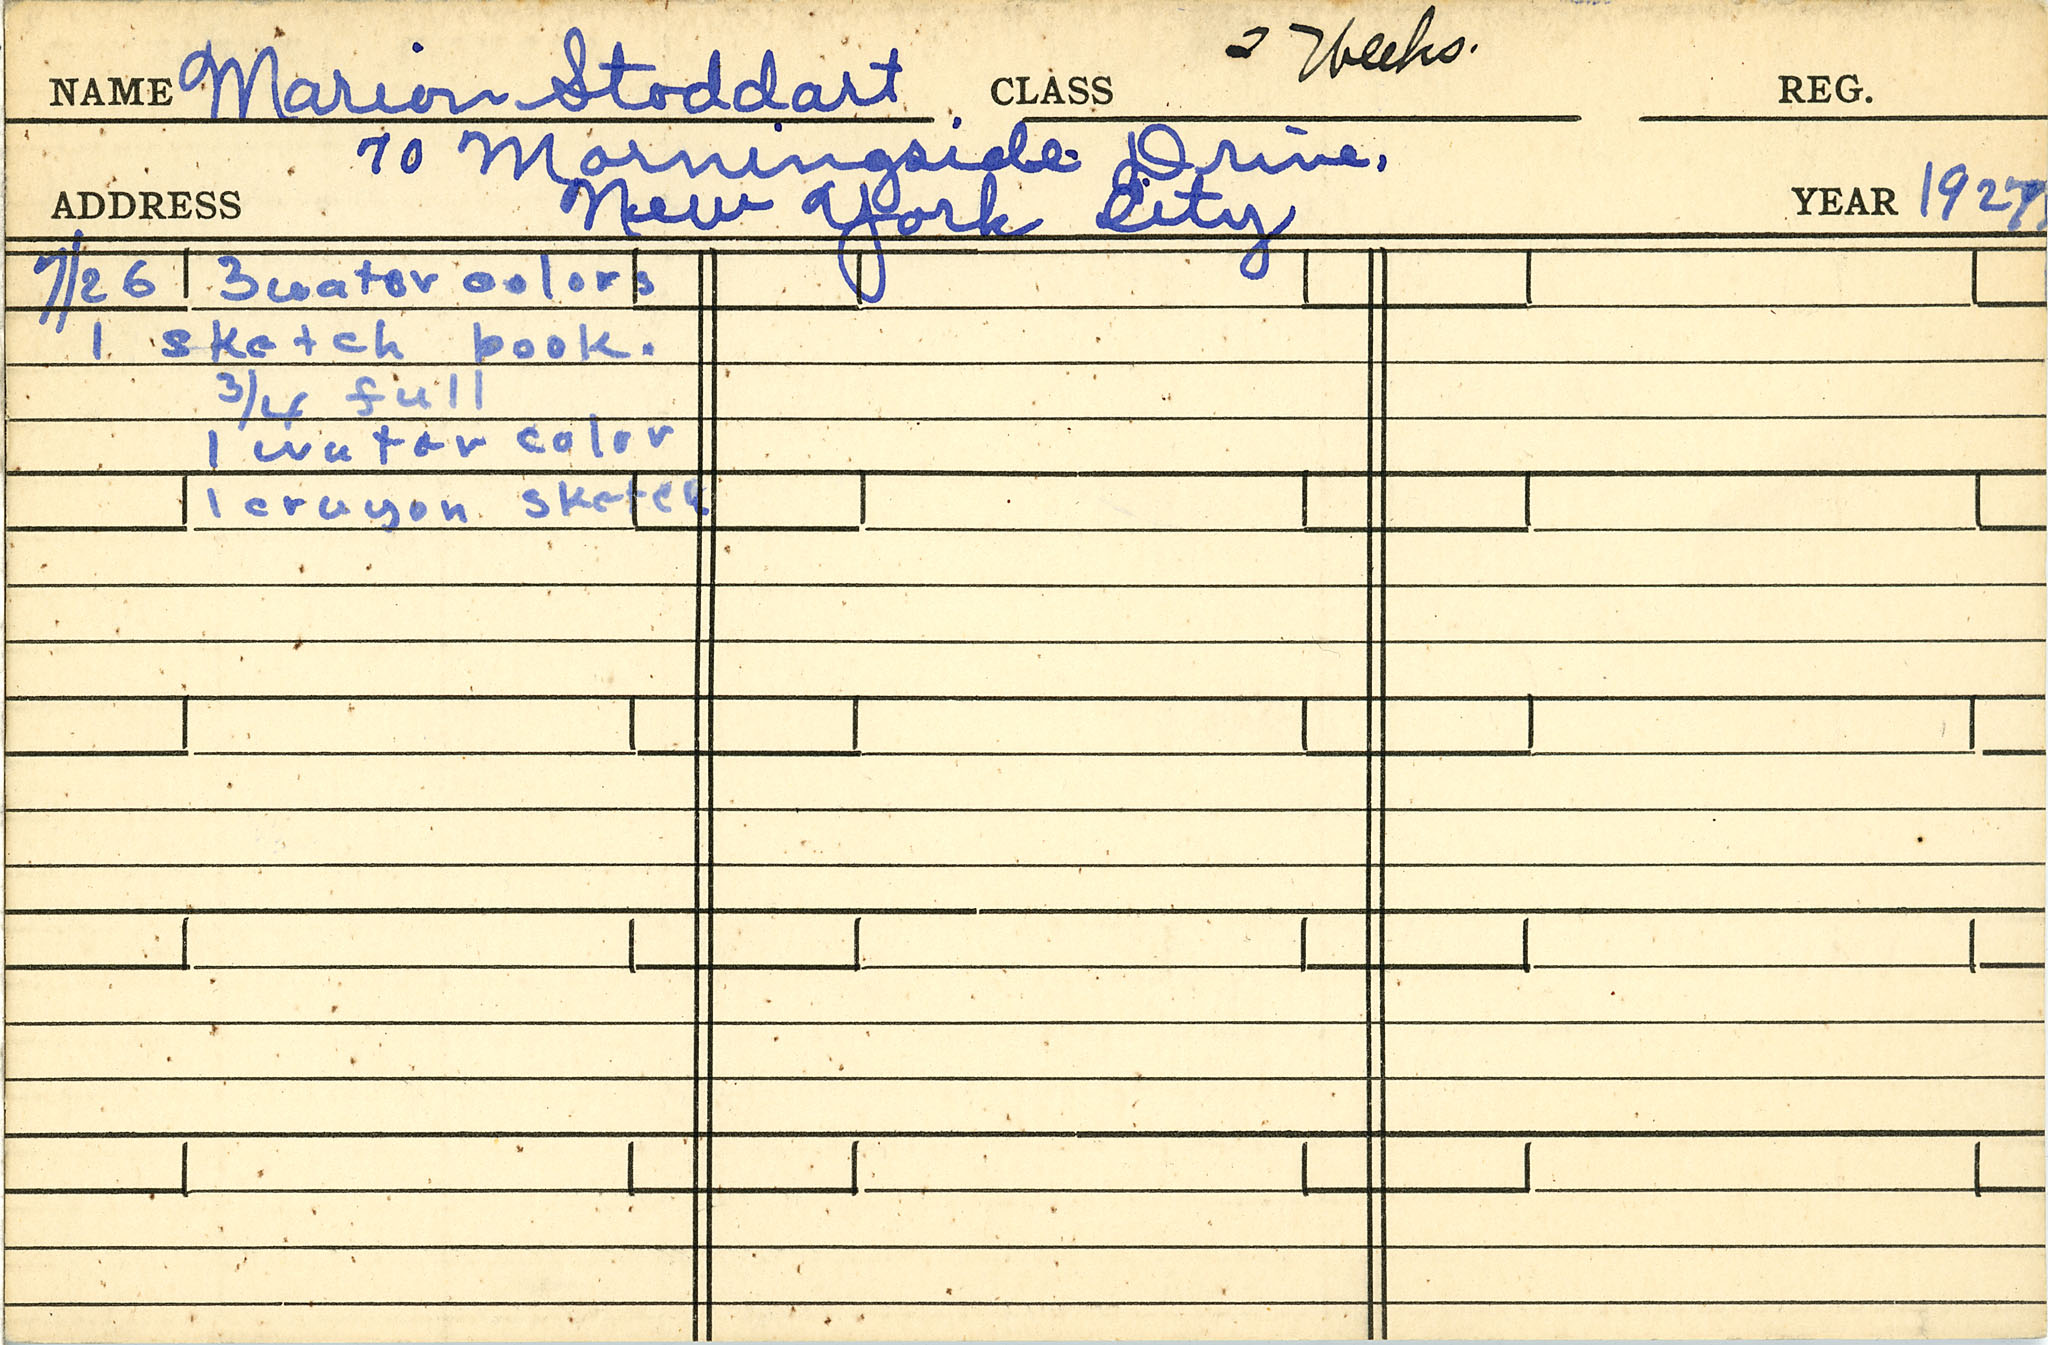 2 Weeks.
NAME Marion Stoddart CLASS REG.
70 Morningside Drive,
ADDRESS New York City YEAR 1927
7/26 3 water colors
1 sketch book.
3/4 full
1 water color
1 crayon sketch